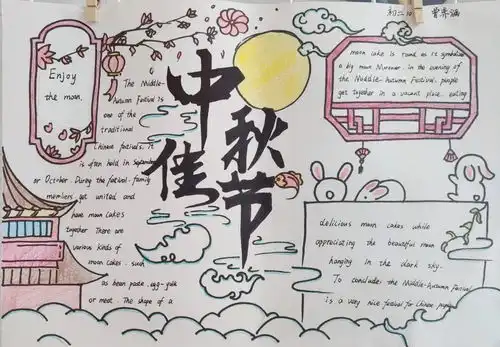 初二
Enjoy
the moon.
中秋佳节
The Middle-
Autumn Festival is
one of the
traditional
Chinese festivals. It
is often held in September
or October. During the festival, family
members get united and
have moon cakes
together. There are
various kinds of
moon cakes. such
as bean paste. egg-yolk
or meat. The shape of a
moon cake is round as it symbolize
a big moon. Moreover. in the evening of
the Middle-Autumn Festival. people
get together in a vacant place. eating
delicious moon cakes while
appreciating the beautiful moon
hanging in the dark sky.
To conclude. the Middle-Autumn Festival
Is a very nice festival for Chinese people